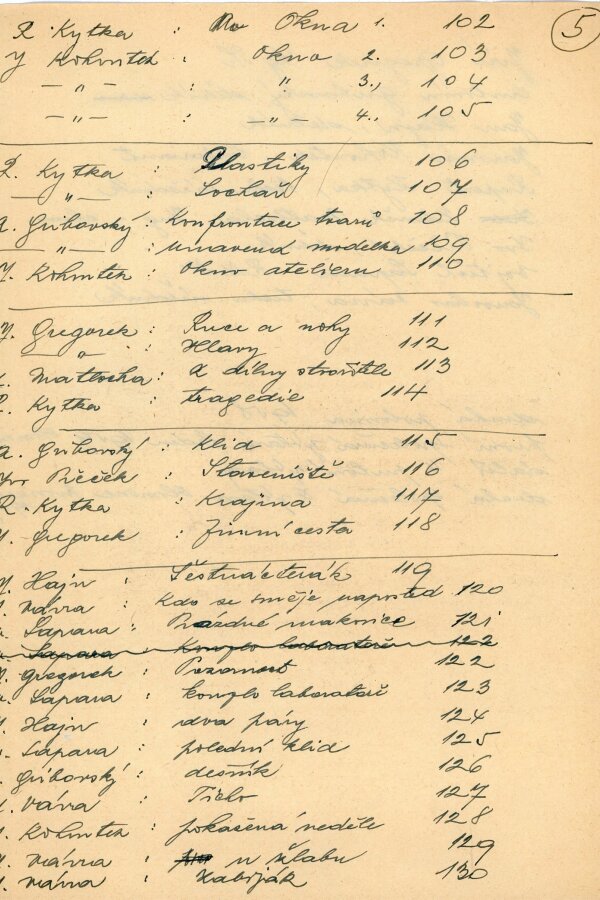 5
R. Kytka : Okna 1. 102
J Kohmteh : Okno 2. 103
— " — : " 3., 104
— " — : — " — 4., 105
R. Kytka Plastiky 106
— " — : Sochař 107
A. Gribovský : Konfrontace tvarů 108
— " — : unavená modelka 109
J. Kohmteh : Okno atelieru 110
J. Gregorek : Ruce a nohy 111
— " — : Hlavy 112
Matlocha : Z dílny stvořitele 113
R. Kytka : tragedie 114
A. Gribovský : klid 115
Staveniště 116
R. Kytka : Krajina 117
J. Gregorek : Zimní cesta 118
Hajn : Šestnácterák 119
Vávra : Kdo se směje naposled 120
Sapara : Prázdné makovice 121
Sapara : Komplo laboratoře 122
Gregorek : Pozornost 122
Sapara : komplo laboratoř 123
Hajn : dva páry 124
Sapara : polední klid 125
Gribovský : deštník 126
Vávra : Ticho 127
Kohmteh : pokažená neděle 128
Vávra : u žlabu 129
Vávra : Kabrják 130